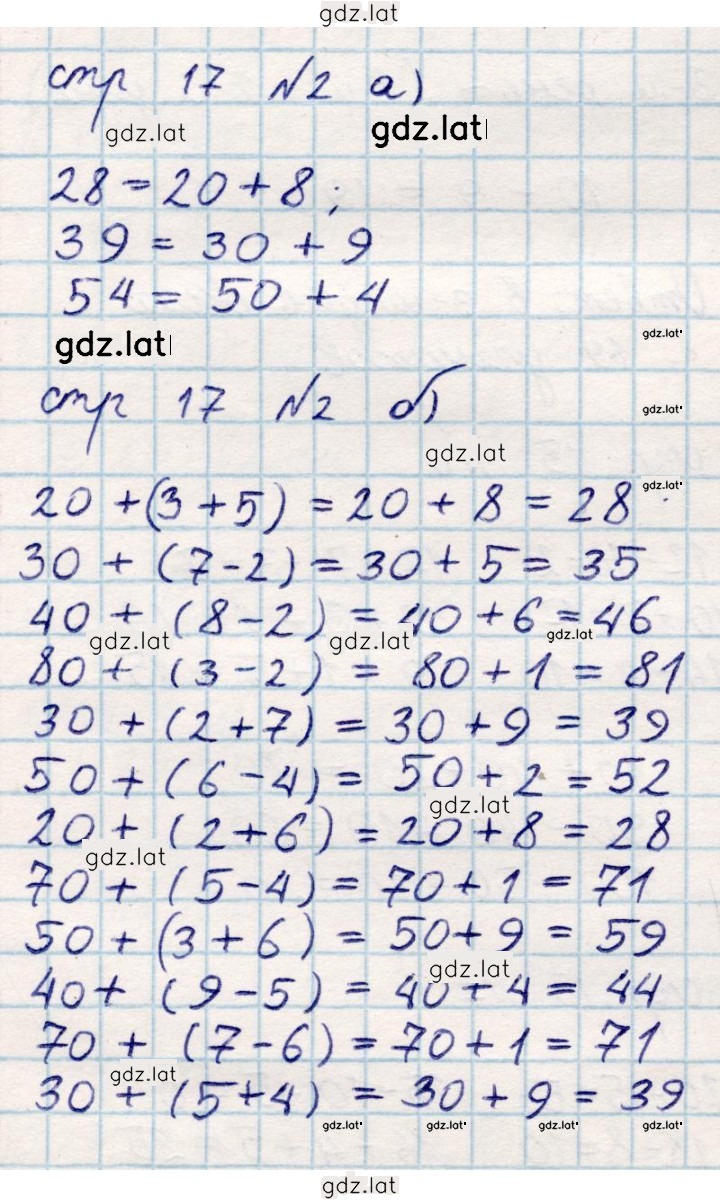 gdz.lat
стр 17 №2 а)
gdz.lat gdz.lat
28 = 20 + 8 ;
39 = 30 + 9
54 = 50 + 4
gdz.lat
gdz.lat
стр 17 №2 б)
gdz.lat
gdz.lat
gdz.lat
20 + (3 + 5) = 20 + 8 = 28
30 + (7 - 2) = 30 + 5 = 35
40 + (8 - 2) = 40 + 6 = 46
gdz.lat gdz.lat gdz.lat
80 + (3 - 2) = 80 + 1 = 81
30 + (2 + 7) = 30 + 9 = 39
50 + (6 - 4) = 50 + 2 = 52
gdz.lat
20 + (2 + 6) = 20 + 8 = 28
gdz.lat
70 + (5 - 4) = 70 + 1 = 71
50 + (3 + 6) = 50 + 9 = 59
gdz.lat
40 + (9 - 5) = 40 + 4 = 44
70 + (7 - 6) = 70 + 1 = 71
gdz.lat
30 + (5 + 4) = 30 + 9 = 39
gdz.lat gdz.lat gdz.lat gdz.lat
gdz.lat